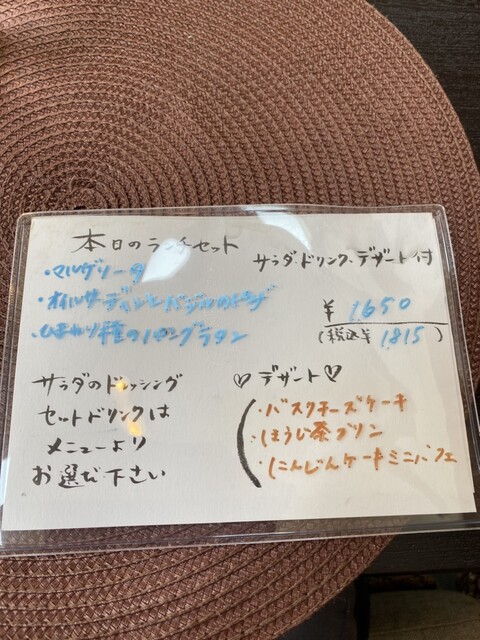 本日のランチセット
サラダ・ドリンク、デザート付
・マルゲリータ
・オイルサーディンとバジルのピザ
・ひまわり種のパングラタン
¥1,650
(税込¥1,815)
サラダのドレッシング
セットドリンクは
メニューより
お選び下さい
♡デザート♡
・バスクチーズケーキ
・ほうじ茶プリン
・にんじんケーキミニパフェ